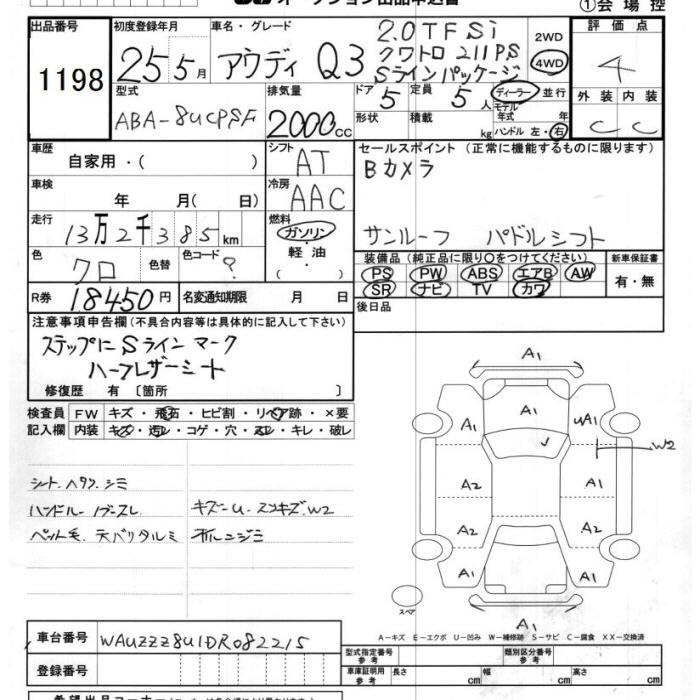 オークション出品申込書 ①会場控
出品番号 初度登録年月 車名・グレード 2.0TFSi 2WD 評価点
1198 25 5月 アウディ Q3 クワトロ 211PS 4WD 4
Sラインパッケージ
型式 排気量 ドア 5 定員 5人 ディーラー 並行 外装 内装
ABA-8UCPSF 2000cc 形状 積載 kg モデル年式 年 C C
ハンドル 左・右
車歴 自家用・( ) シフト AT セールスポイント (正常に機能するものに限ります)
Bカメラ
車検 年 月(日) 冷房 AAC
走行 13万2千385km 燃料 ガソリン・軽油( ) サンルーフ パドルシフト
色 クロ 色替 色コード ? 装備品(純正品に限り○をつけてください) 新車保証書
PS PW ABS エアB AW 有・無
R券 18450円 名変通知期限 月 日 SR ナビ TV カワ
後日品
注意事項申告欄(不具合内容等は具体的に記入して下さい)
ステップにSラインマーク
ハーフレザーシート
修復歴 有 〔箇所 〕
検査員 FW キズ・飛石・ヒビ割・リペア跡・×要
記入欄 内装 キズ・汚レ・コゲ・穴・スレ・キレ・破レ
シートヘタリ シミ
ハンドルーノブスレ キズーU スリキズ W2
ペット毛 天バリタルミ
A1
A1 A1 UA1
W2
A2 A1
A2 A2
A1 A1
スペア A1
A-キズ E-エクボ U-凹み W-補修跡 S-サビ C-腐食 XX-交換済
車台番号 WAUZZZ8U1DR082215 型式指定番号 参考 類別区分番号 参考
登録番号 車庫証明用 参考 長さ cm 幅 cm 高さ cm